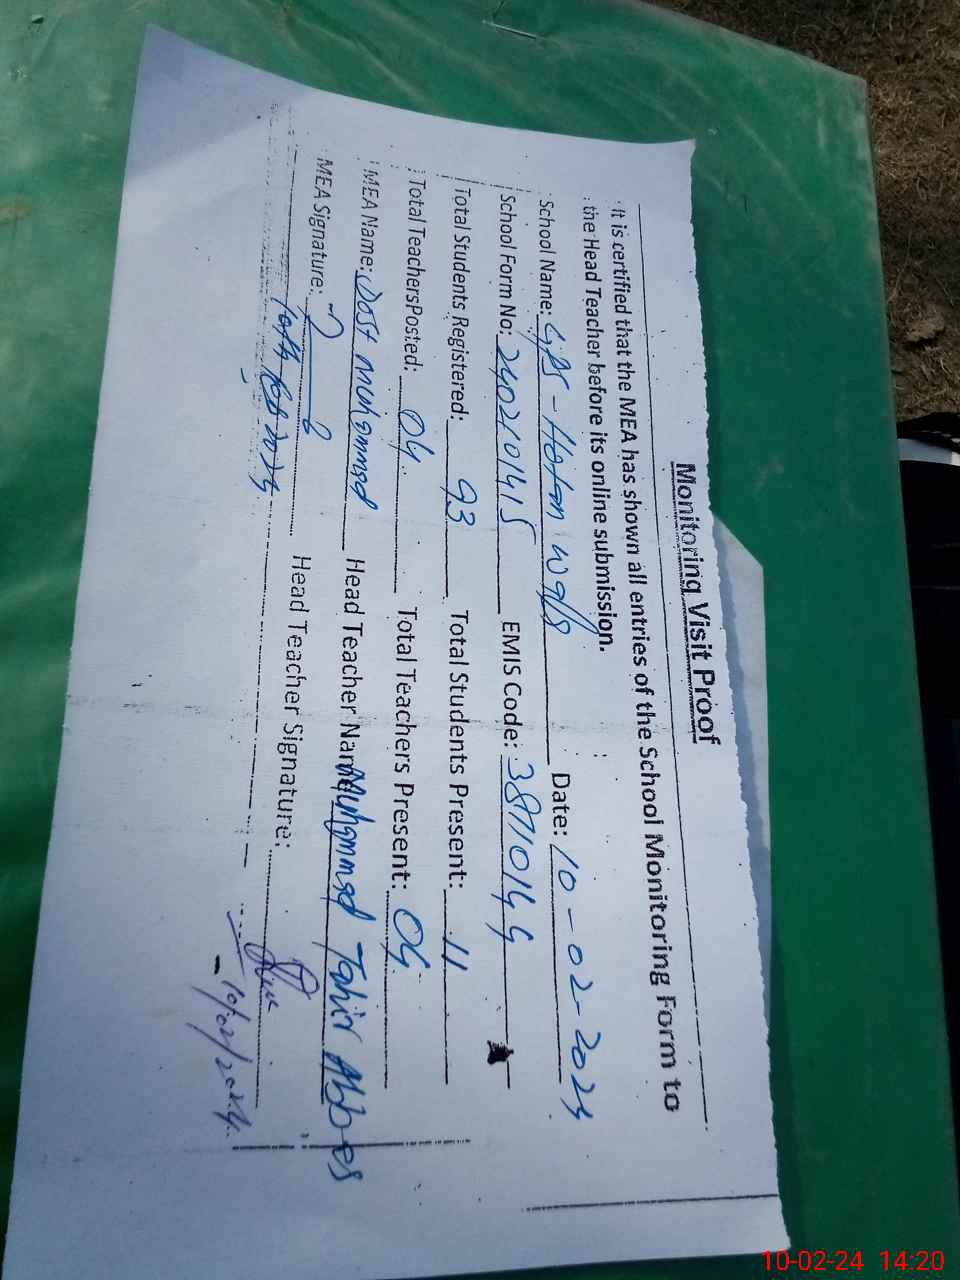 Monitoring Visit Proof
It is certified that the MEA has shown all entries of the School Monitoring Form to
the Head Teacher before its online submission.
School Name: GPS - Hotan Wala Date: 10-02-2024
School Form No: 2402101415 EMIS Code: 38110144
Total Students Registered: 93 Total Students Present: 11
Total TeachersPosted: 04 Total Teachers Present: 04
MEA Name: Dost Muhammad Head Teacher Name Muhammad Tahir Abbas
MEA Signature: Head Teacher Signature:
10th Feb 2024
10/02/2024
10-02-24 14:20